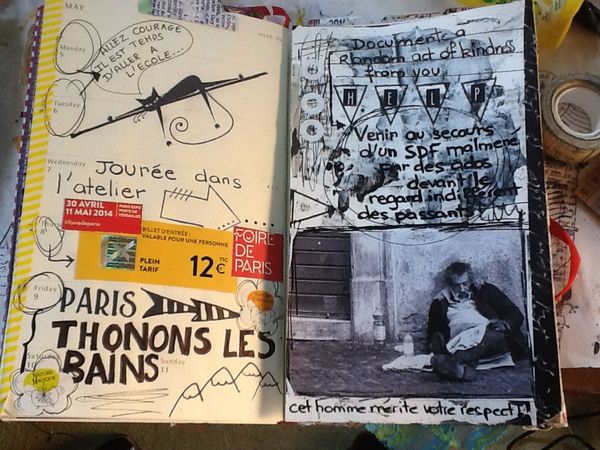 MAY
Monday
5
ALLEZ COURAGE
IL EST TEMPS
D'ALLER A
L'ECOLE...
week 19
Tuesday
6
Wednesday
7
Jourée dans
l'atelier
30 AVRIL
11 MAI 2014
#foiredeparis
PARIS EXPO
PORTE DE
VERSAILLES
Thursday
8
BILLET D'ENTRÉE
VALABLE POUR UNE PERSONNE
PLEIN
TARIF
12€
TTC
FOIRE
DE
PARIS
Friday
9
PARIS
THONONS LES
BAINS
Saturday
10
Sunday
11
Documente a
Random act of kindness
from you
HELP
Venir au secours
d'un SDF malmené
par des ados
devant le
regard indifférent
des passants
cet homme mérite votre respect